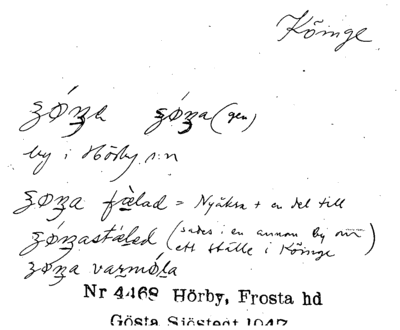 Köinge
ʒøŋa ʒøŋa (gen)
by i Hörby s:n
ʒøŋa fælad = Nyåkra + en del till
ʒøŋastæled (sades i en annan by om
ett ställe i Köinge)
ʒøŋa vaŋmöla
Nr 4469 Hörby, Frosta hd
Gösta Sjöstedt 1947